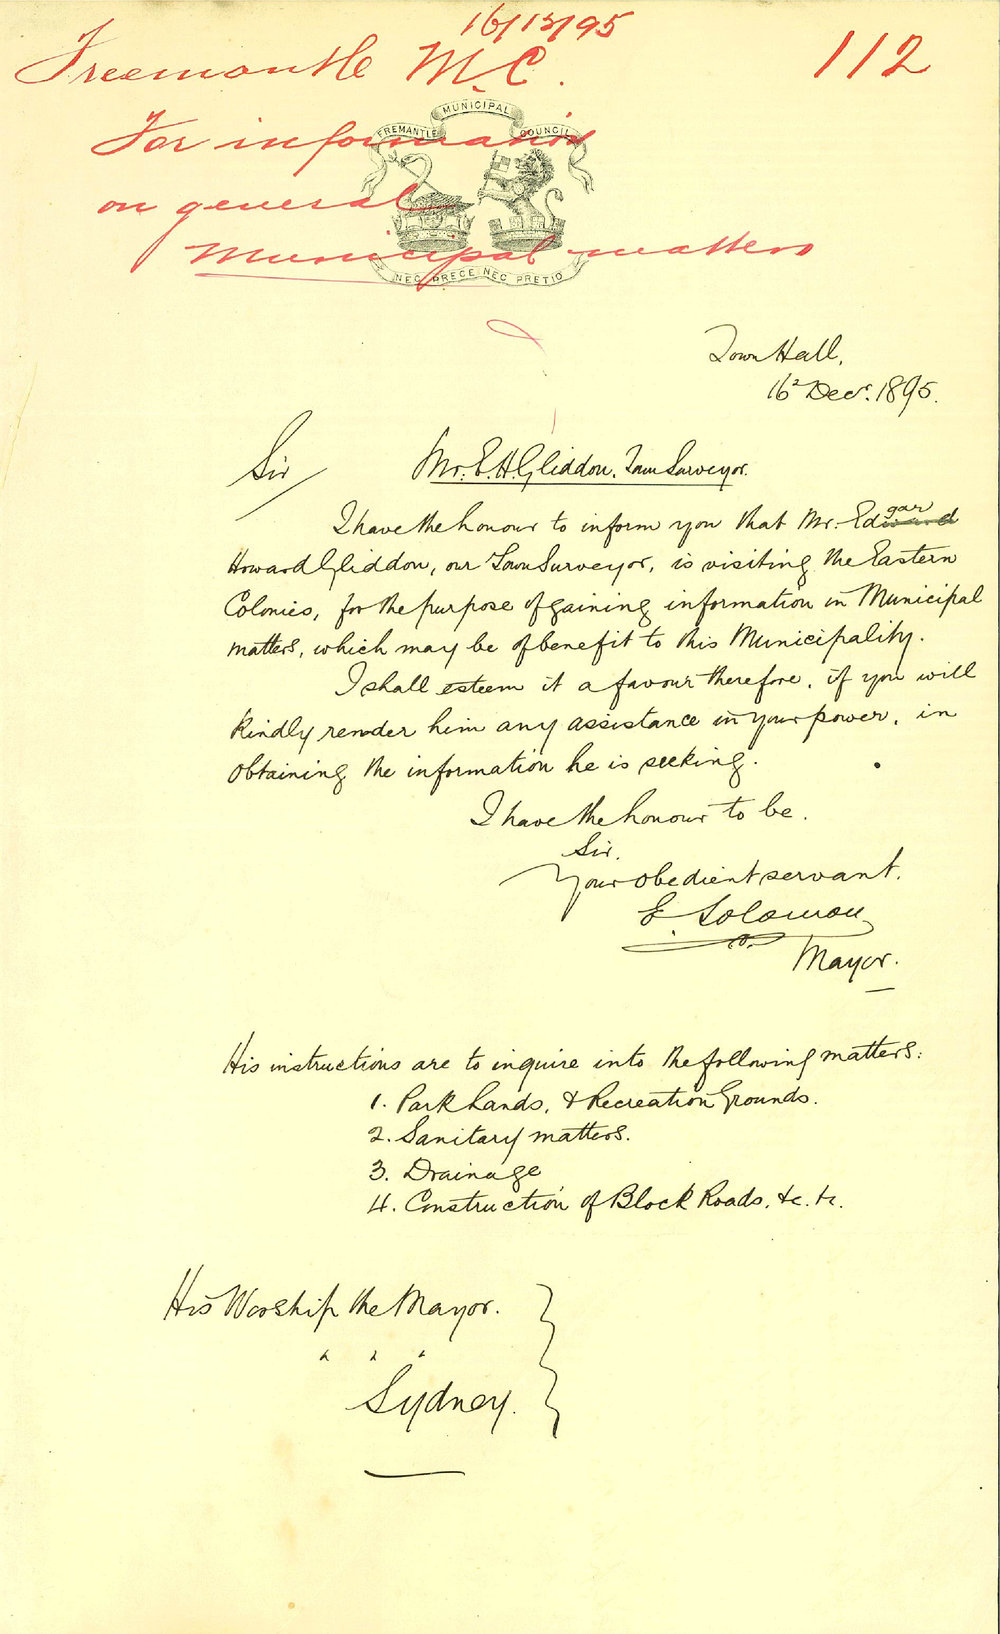 16/12/95
Freemantle M.C.
112
For information
on general
Municipal matters
FREMANTLE MUNICIPAL COUNCIL
NEC PRECE NEC PRETIO
Town Hall,
16th Decr. 1895.
Sir
Mr. E. H. Gliddon, Town Surveyor.
I have the honour to inform you that Mr. Edward gar
Howard Gliddon, our Town Surveyor, is visiting the Eastern
Colonies, for the purpose of gaining information in Municipal
matters, which may be of benefit to this Municipality.
I shall esteem it a favour therefore, if you will
kindly render him any assistance in your power, in
obtaining the information he is seeking.
I have the honour to be.
Sir.
Your obedient servant.
E. Solomon
Mayor.
His instructions are to inquire into the following matters:
1. Park Lands, & Recreation Grounds.
2. Sanitary matters.
3. Drainage
4. Construction of Block Roads, &c. &c.
His Worship the Mayor.
" " "
Sydney.